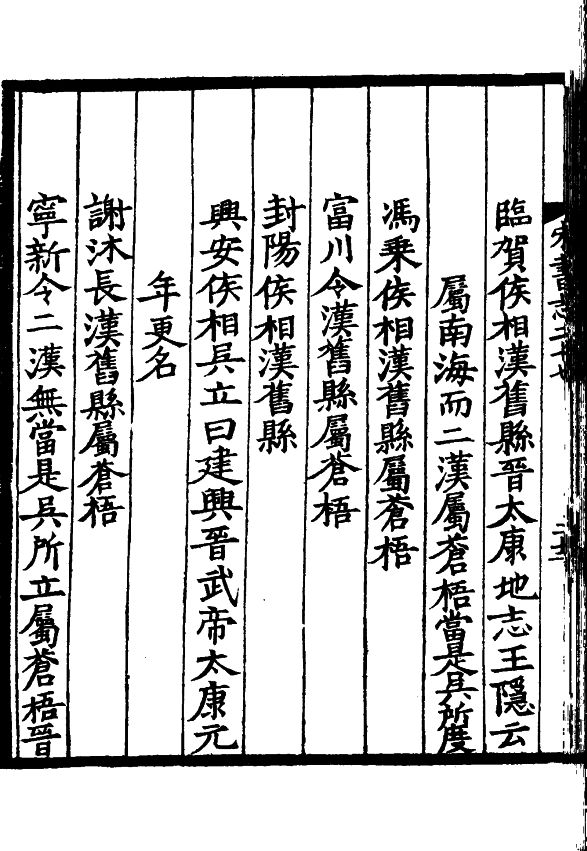 臨賀侯相漢舊縣晉太康地志王隱云
屬南海而二漢屬蒼梧當是吳所度
馮乗侯相漢舊縣屬蒼梧
富川令漢舊縣屬蒼梧
封陽侯相漢舊縣
興安侯相吳立曰建興晉武帝太康元
年更名
謝沐長漢舊縣屬蒼梧
寧新令二漢無當是吳所立屬蒼梧晉